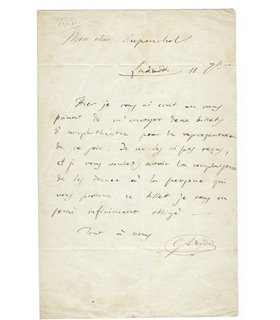 Verdi
Mon cher Duponchel
11 7bre
Hier je vous ai écrit en vous
priant de m'envoyer deux billets
d'amphithéatre pour la representation
de ce soir. Je ne les ai pas reçus,
et si vous voulez avoir la complaisance
de les donner à la personne qui
vous portera ce billet je vous en
serai infiniment obligé
Tout à vous
G Verdi